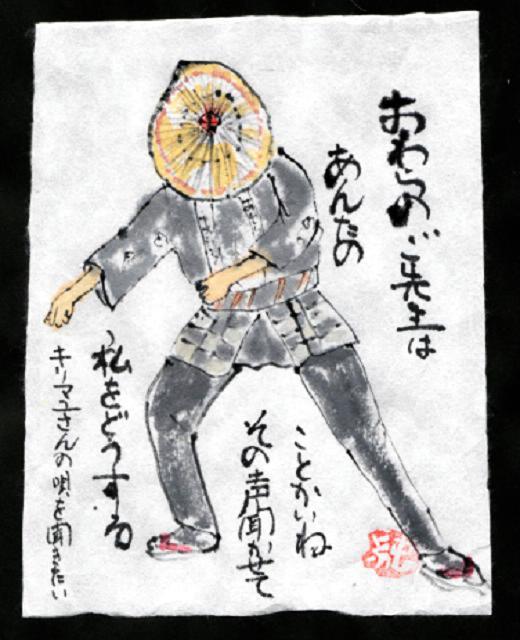 おわらのご先生は
あんたの
ことかいね
その声聞かせて
私をどうする
キーマユさんの唄を聞きたい